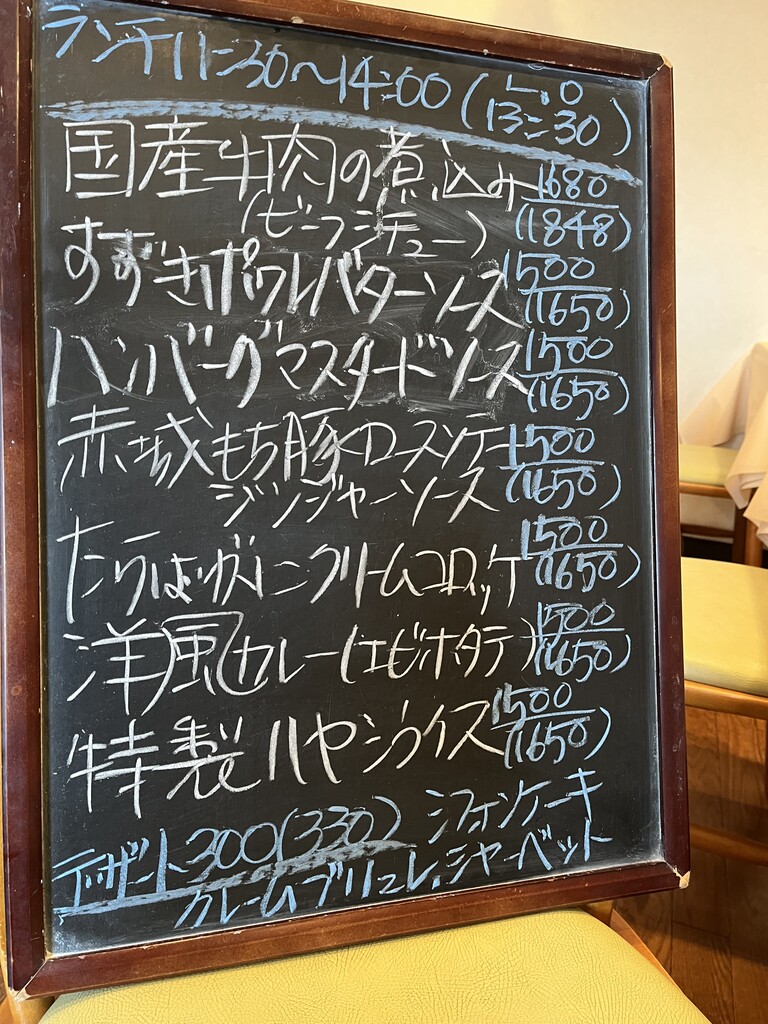 ランチ11:30〜14:00(L.O 13:30)
国産牛肉の煮込み 1680
(ビーフシチュー) (1848)
すずきポワレバターソース 1500 (1650)
ハンバーグマスタードソース 1500 (1650)
赤城もち豚ロースソテー 1500
ジンジャーソース (1650)
たらばガニクリームコロッケ 1500 (1650)
洋風カレー(エビホタテ) 1500 (1650)
特製ハヤシライス 1500 (1650)
デザート300(330) シフォンケーキ
クレームブリュレ、シャーベット